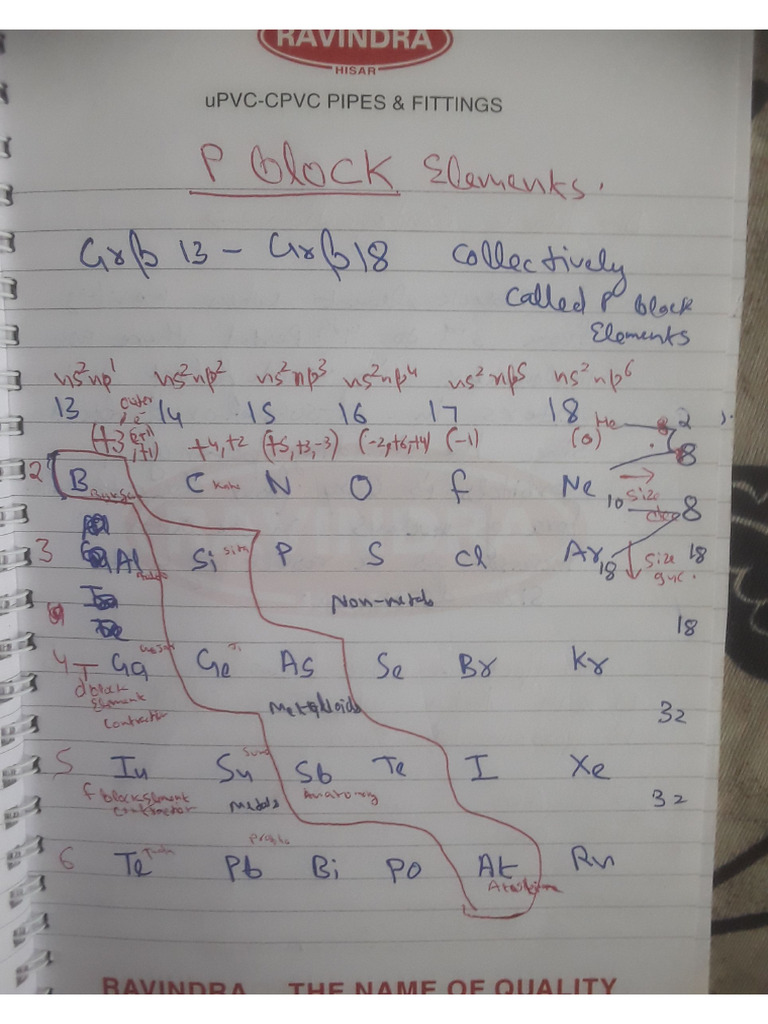 RAVINDRA
HISAR
uPVC-CPVC PIPES & FITTINGS
P Block Elements.
Grp 13 - Grp 18 collectively
called P block
Elements
ns²np¹ ns²np² ns²np³ ns²np⁴ ns²np⁵ ns²np⁶
outer e⁻
13 14 15 16 17 18 He 2
(+3, +1) +4,+2 (+5,+3,-3) (-2,+6,+4) (-1) (0) 8
2 B C N O F Ne 10 size 8
3 Al Si P S Cl Ar 18 size 18
Non-metals
18
4 Ga Ge As Se Br Kr
d block
Element
Metalloids
32
5 In Sn Sb Te I Xe
f block Element
Metals
32
6 Te Pb Bi Po At Rn
RAVINDRA THE NAME OF QUALITY